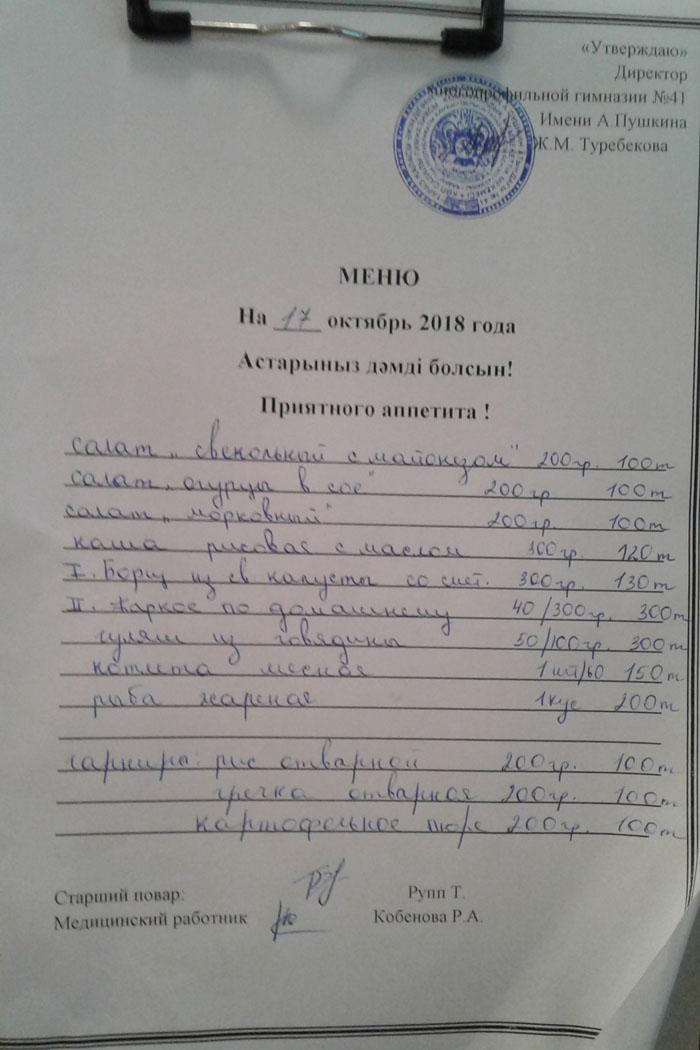 «Утверждаю»
Директор
многопрофильной гимназии №41
Имени А.Пушкина
Ж.М. Туребекова
МЕНЮ
На 17 октябрь 2018 года
Астарыныз дәмді болсын!
Приятного аппетита !
салат „свекольный с майонезом" 200гр. 100т
салат „огурцы в сое" 200гр 100т
салат „морковный" 200гр 100т
каша рисовая с маслом 300гр. 120т
I. Борщ из св капусты со смет. 300гр. 130т
II. Жаркое по домашнему 40/300гр. 300т
гуляш из говядины 50/100гр. 300т
котлета мясная 1шт/60 150т
рыба жареная 1кус 200т
гарниры: рис отварной 200гр. 100т
гречка отварная 200гр. 100т
картофельное пюре 200гр. 100т
Старший повар: Рупп Т.
Медицинский работник Кобенова Р.А.